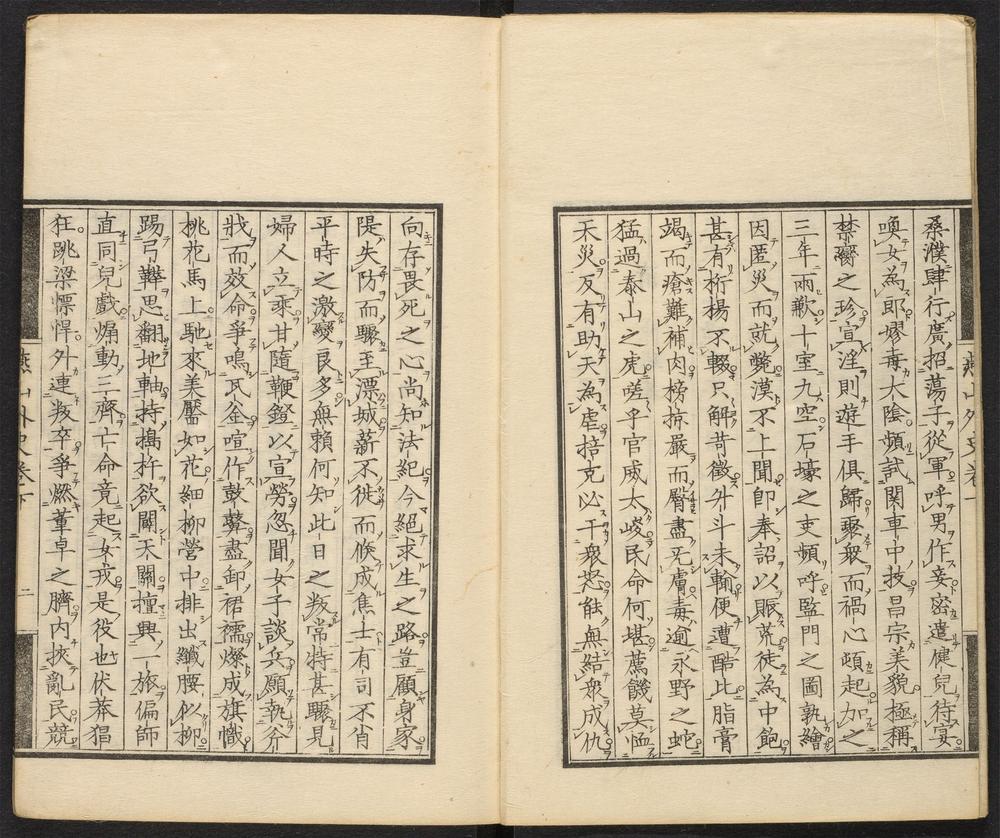 桑濮肆行廣招蕩子從軍呼男作妾密遣健兒待宴
喚女為郎嫪毐大陰頻試関車中技昌宗美貌極稱
禁臠之珍宣淫則遊手俱歸聚衆而禍心頓起加之
三年兩歉十室九空石壕之吏頻呼監門之圖孰繪
因匿災而就斃漠不上聞卽奉詔以賑荒徒為中飽
甚有桁揚不輟只解苛徵升斗未輸便遭酷比脂膏
竭而瘡難補肉榜掠嚴而臀盡无膚毒逾永野之蛇
猛過泰山之虎嗟乎官威太峻民命何堪薦饑莫恤
天災反有助天為虐掊克必干衆怒能無結衆成仇
燕山外史卷下
向存畏死之心尚知法紀今絕求生之路豈顧身家
隄失防而驟至漂城薪不徙而倏成焦土有司不肖
平時之激變良多無賴何知此日之叛常特甚驟見
婦人立乘甘隨鞭鐙以宣勞忽聞女子談兵願執斧
戕而效命爭鳴瓦釜喧作鼓鼙盡卸裙襦燦成旗幟
桃花馬上馳來美靨如花細柳營中排出纖腰似柳
踢弓鞾思翻地軸持擣杵欲闢天關撞興一旅偏師
直同兒戲煽動三齊亡命竟起女戎是役也伏莽猖
狂跳梁慓悍外連叛卒爭燃董卓之臍內挾亂民競
燕山外史卷下
二